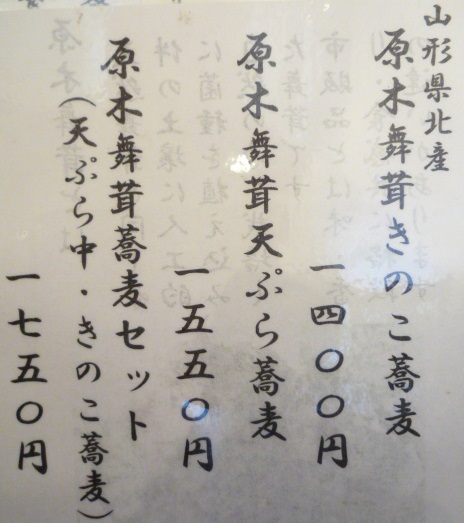 山形県北産
原木舞茸きのこ蕎麦
一四〇〇円
原木舞茸天ぷら蕎麦
一五五〇円
原木舞茸蕎麦セット
（天ぷら中・きのこ蕎麦）
一七五〇円